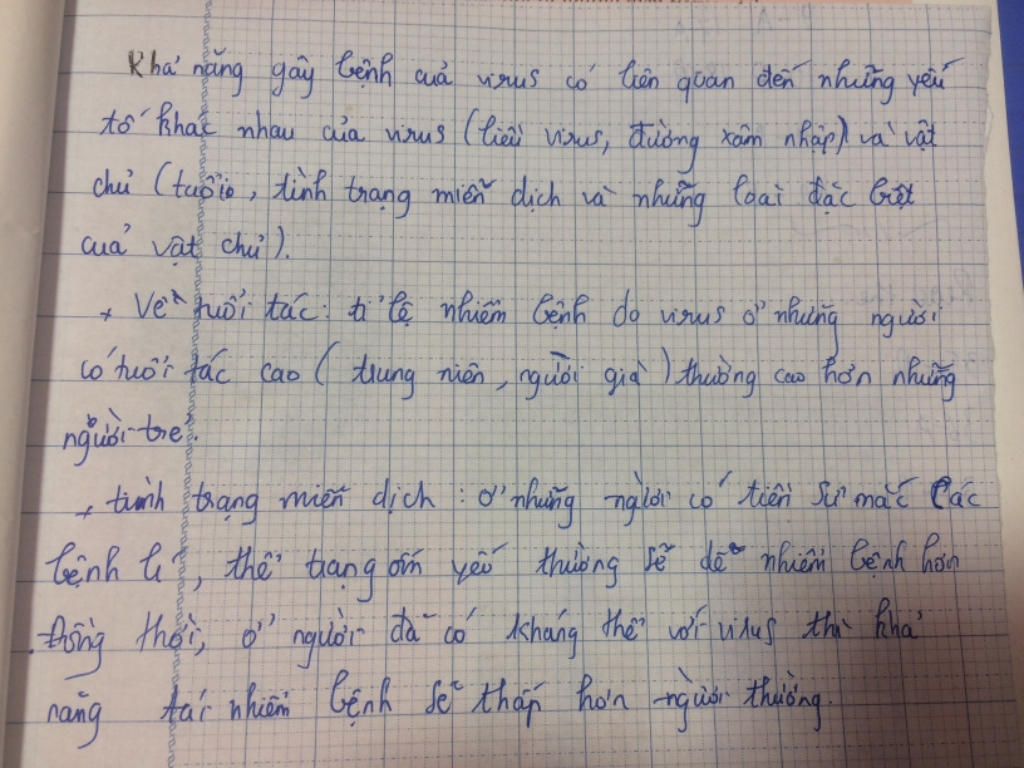 Khả năng gây bệnh của virus có liên quan đến những yếu
tố khác nhau của virus (liều virus, đường xâm nhập) và vật
chủ (tuổi, tình trạng miễn dịch và những loài đặc biệt
của vật chủ).
+ Về tuổi tác: tỉ lệ nhiễm bệnh do virus ở những người
có tuổi tác cao ( trung niên, người già ) thường cao hơn những
người trẻ.
+ tình trạng miễn dịch : ở những người có tiền sử mắc các
bệnh lí, thể trạng ốm yếu thường sẽ dễ nhiễm bệnh hơn
. Đồng thời, ở người đã có kháng thể với virus thì khả
năng tái nhiễm bệnh sẽ thấp hơn người thường.